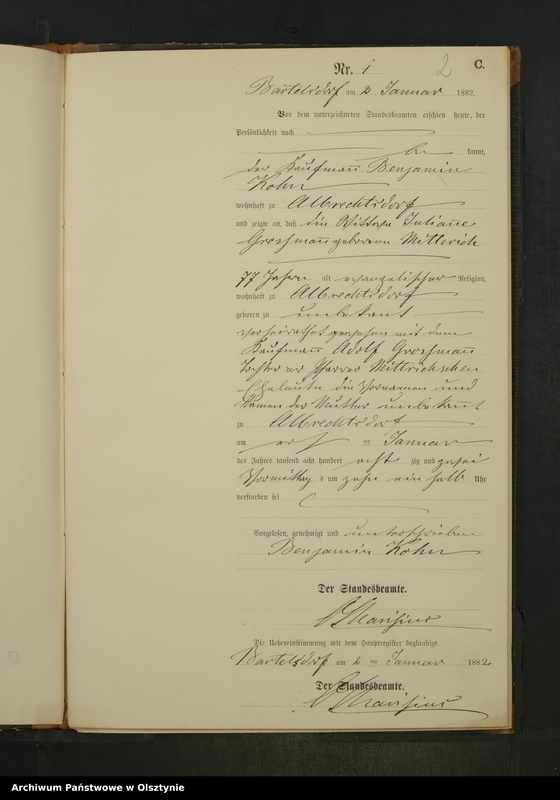 Nr. 1
2
C.
Bartelsdorf am 2 Januar 1882.
Vor dem unterzeichneten Standesbeamten erschien heute, der
Persönlichkeit nach
be kannt,
der Kaufmann Benjamin
Kohn
wohnhaft zu Albrechtsdorf
und zeigte an, daß die Wittwe Juliane
Grossmann geborene Mitterich
77 Jahren alt evangelischer Religion,
wohnhaft zu Albrechtsdorf
geboren zu unbekant
verheirathet gewesen mit dem
Kaufmann Adolf Grossmann
Tochter der Pfarrer Mittrichschen
Eheleute die Vornamen und
Namen der Mutter unbekannt
zu Albrechtsdorf
am erst Januar
des Jahres tausend acht hundert acht zig und zwei
Vormittags um zehn ein halb Uhr
verstorben sei
Vorgelesen, genehmigt und unterschrieben
Benjamin Kohn
Der Standesbeamte.
Die Uebereinstimmung mit dem Hauptregister beglaubigt.
Bartelsdorf am 2 Januar 1882
Der Standesbeamte.
Archiwum Państwowe w Olsztynie